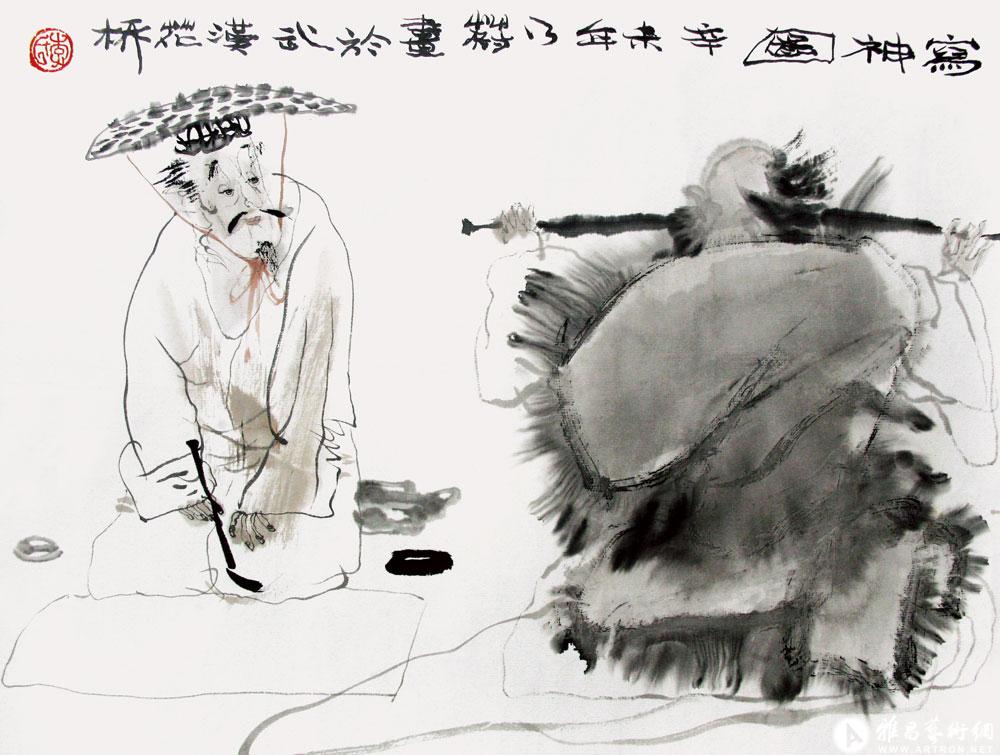 寫神圖辛未年乃蔚畫於武漢花桥
雅昌藝術網
WWW.ARTRON.NET